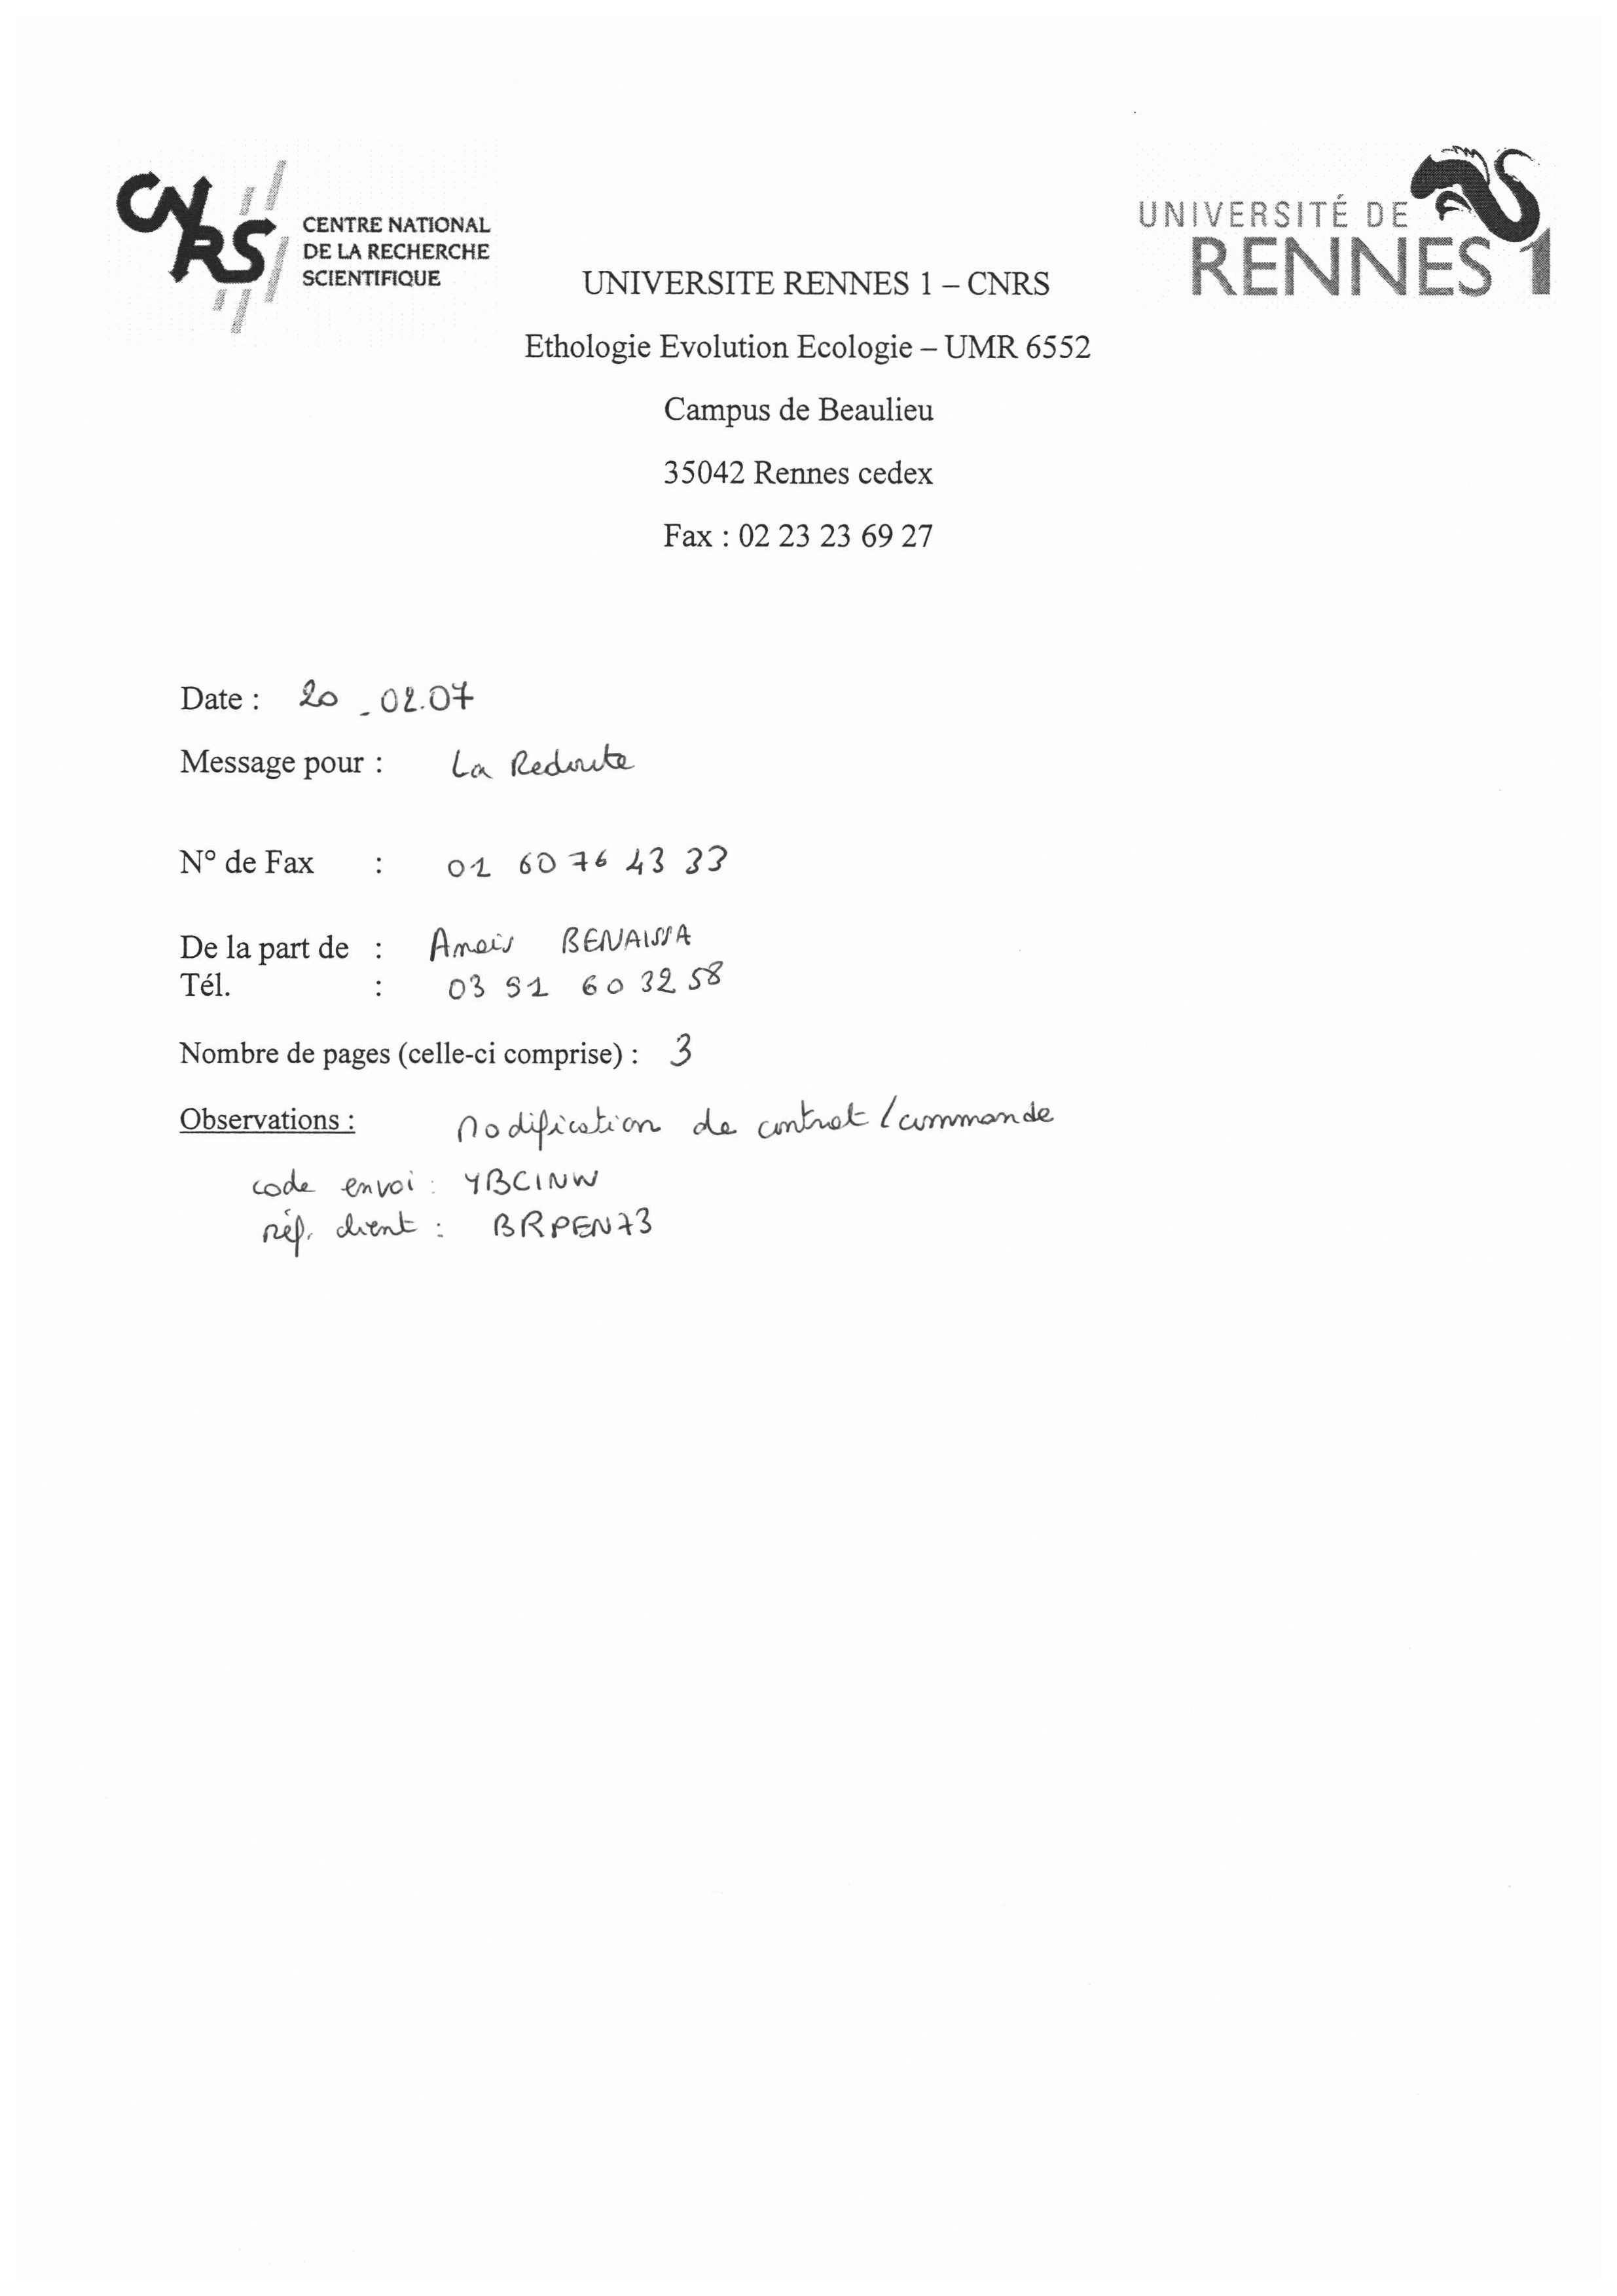 CNRS
CENTRE NATIONAL
DE LA RECHERCHE
SCIENTIFIQUE
UNIVERSITÉ DE
RENNES 1
UNIVERSITE RENNES 1 – CNRS
Ethologie Evolution Ecologie – UMR 6552
Campus de Beaulieu
35042 Rennes cedex
Fax : 02 23 23 69 27
Date : 20_02.07
Message pour : La Redoute
N° de Fax : 01 60 76 43 33
De la part de : Anais BENAISSA
Tél. : 03 91 60 32 58
Nombre de pages (celle-ci comprise) : 3
Observations : Modification de contrat / commande
code envoi : YBCINW
réf. client : BRPEN73